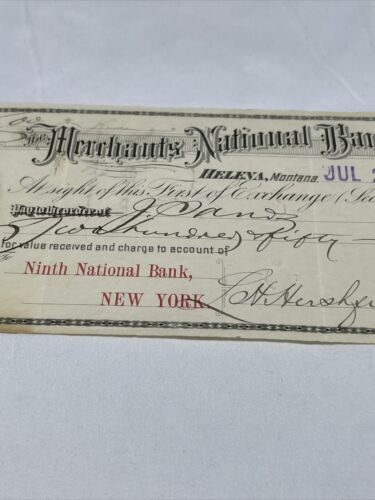 The Merchants National Ban
HELENA, Montana. JUL 2
At sight of this First of Exchange (Sec
Pay to the order of J. Sands
Two hundred & fifty
for value received and charge to account of
To
Ninth National Bank,
NEW YORK. C. H. Hershfie